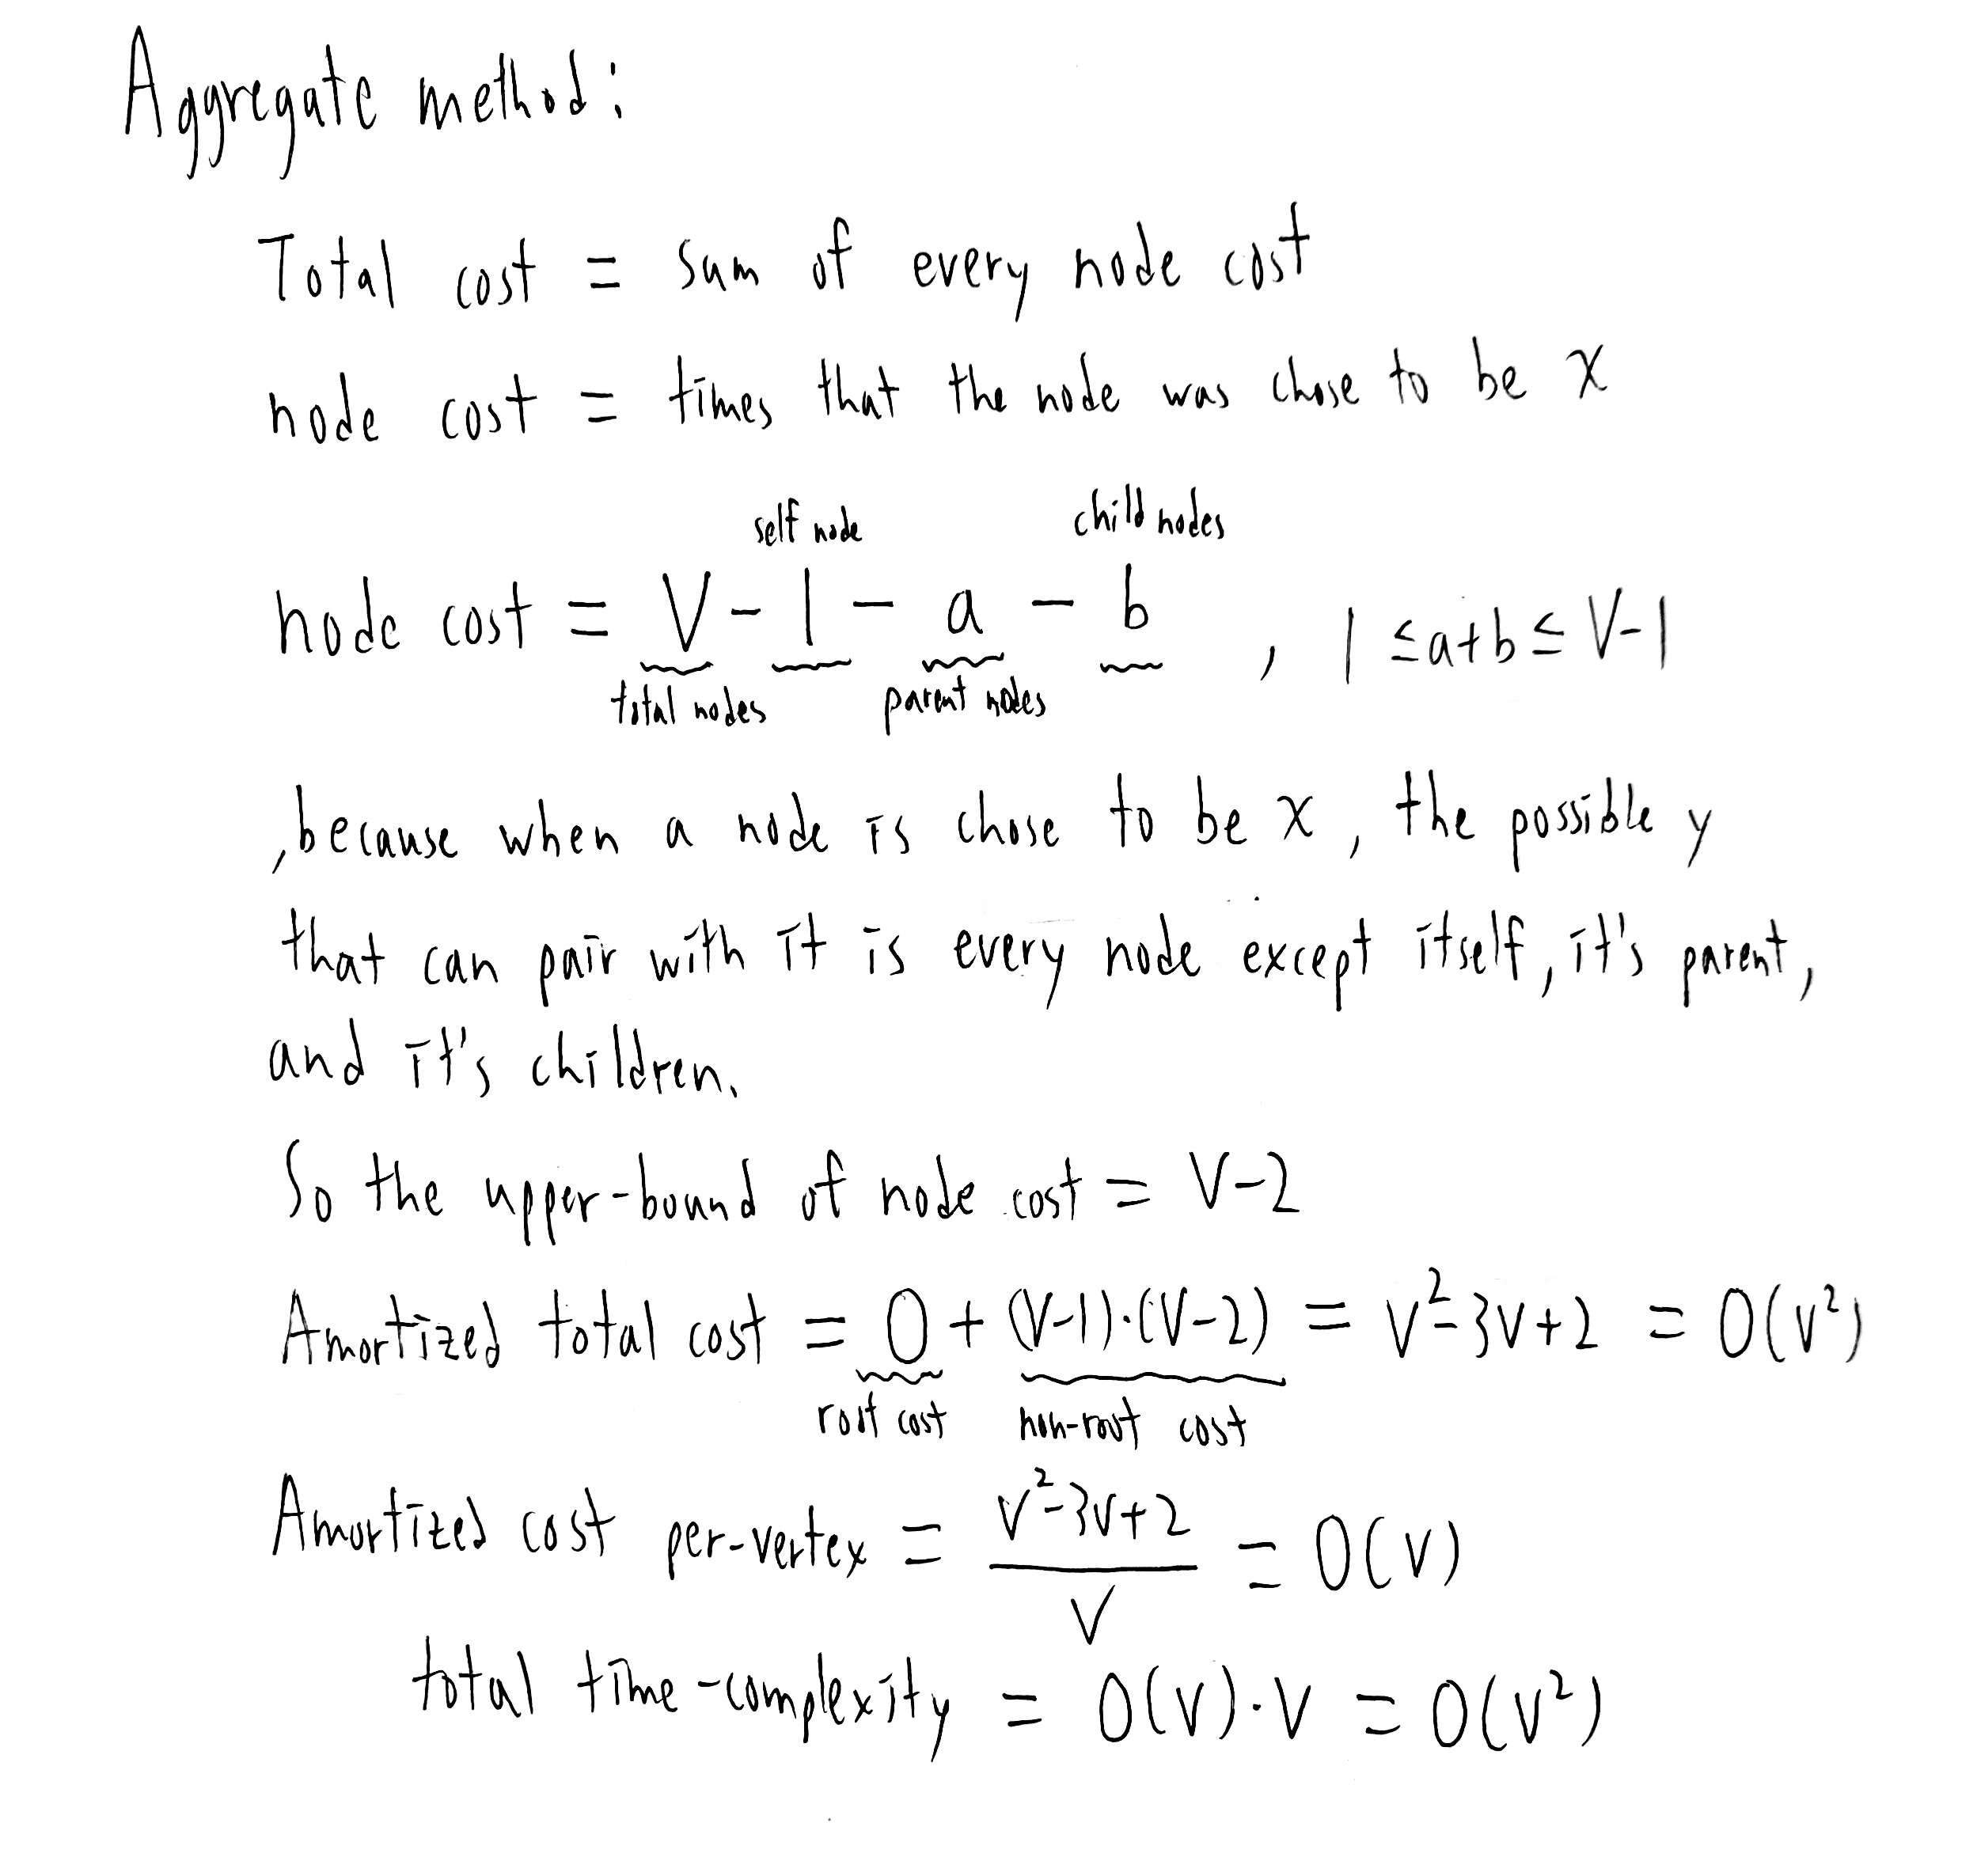 Aggregate method:
Total cost = sum of every node cost
node cost = times that the node was chose to be x
self node child nodes
node cost = V - 1 - a - b , 1 ≤ a+b ≤ V-1
total nodes parent nodes
,because when a node is chose to be x, the possible y
that can pair with it is every node except itself, it's parent,
and it's children.
So the upper-bound of node cost = V-2
Amortized total cost = 0 + (V-1)·(V-2) = V²-3V+2 = O(V²)
root cost non-root cost
Amortized cost per-vertex = V²-3V+2 / V = O(V)
total time-complexity = O(V)·V = O(V²)